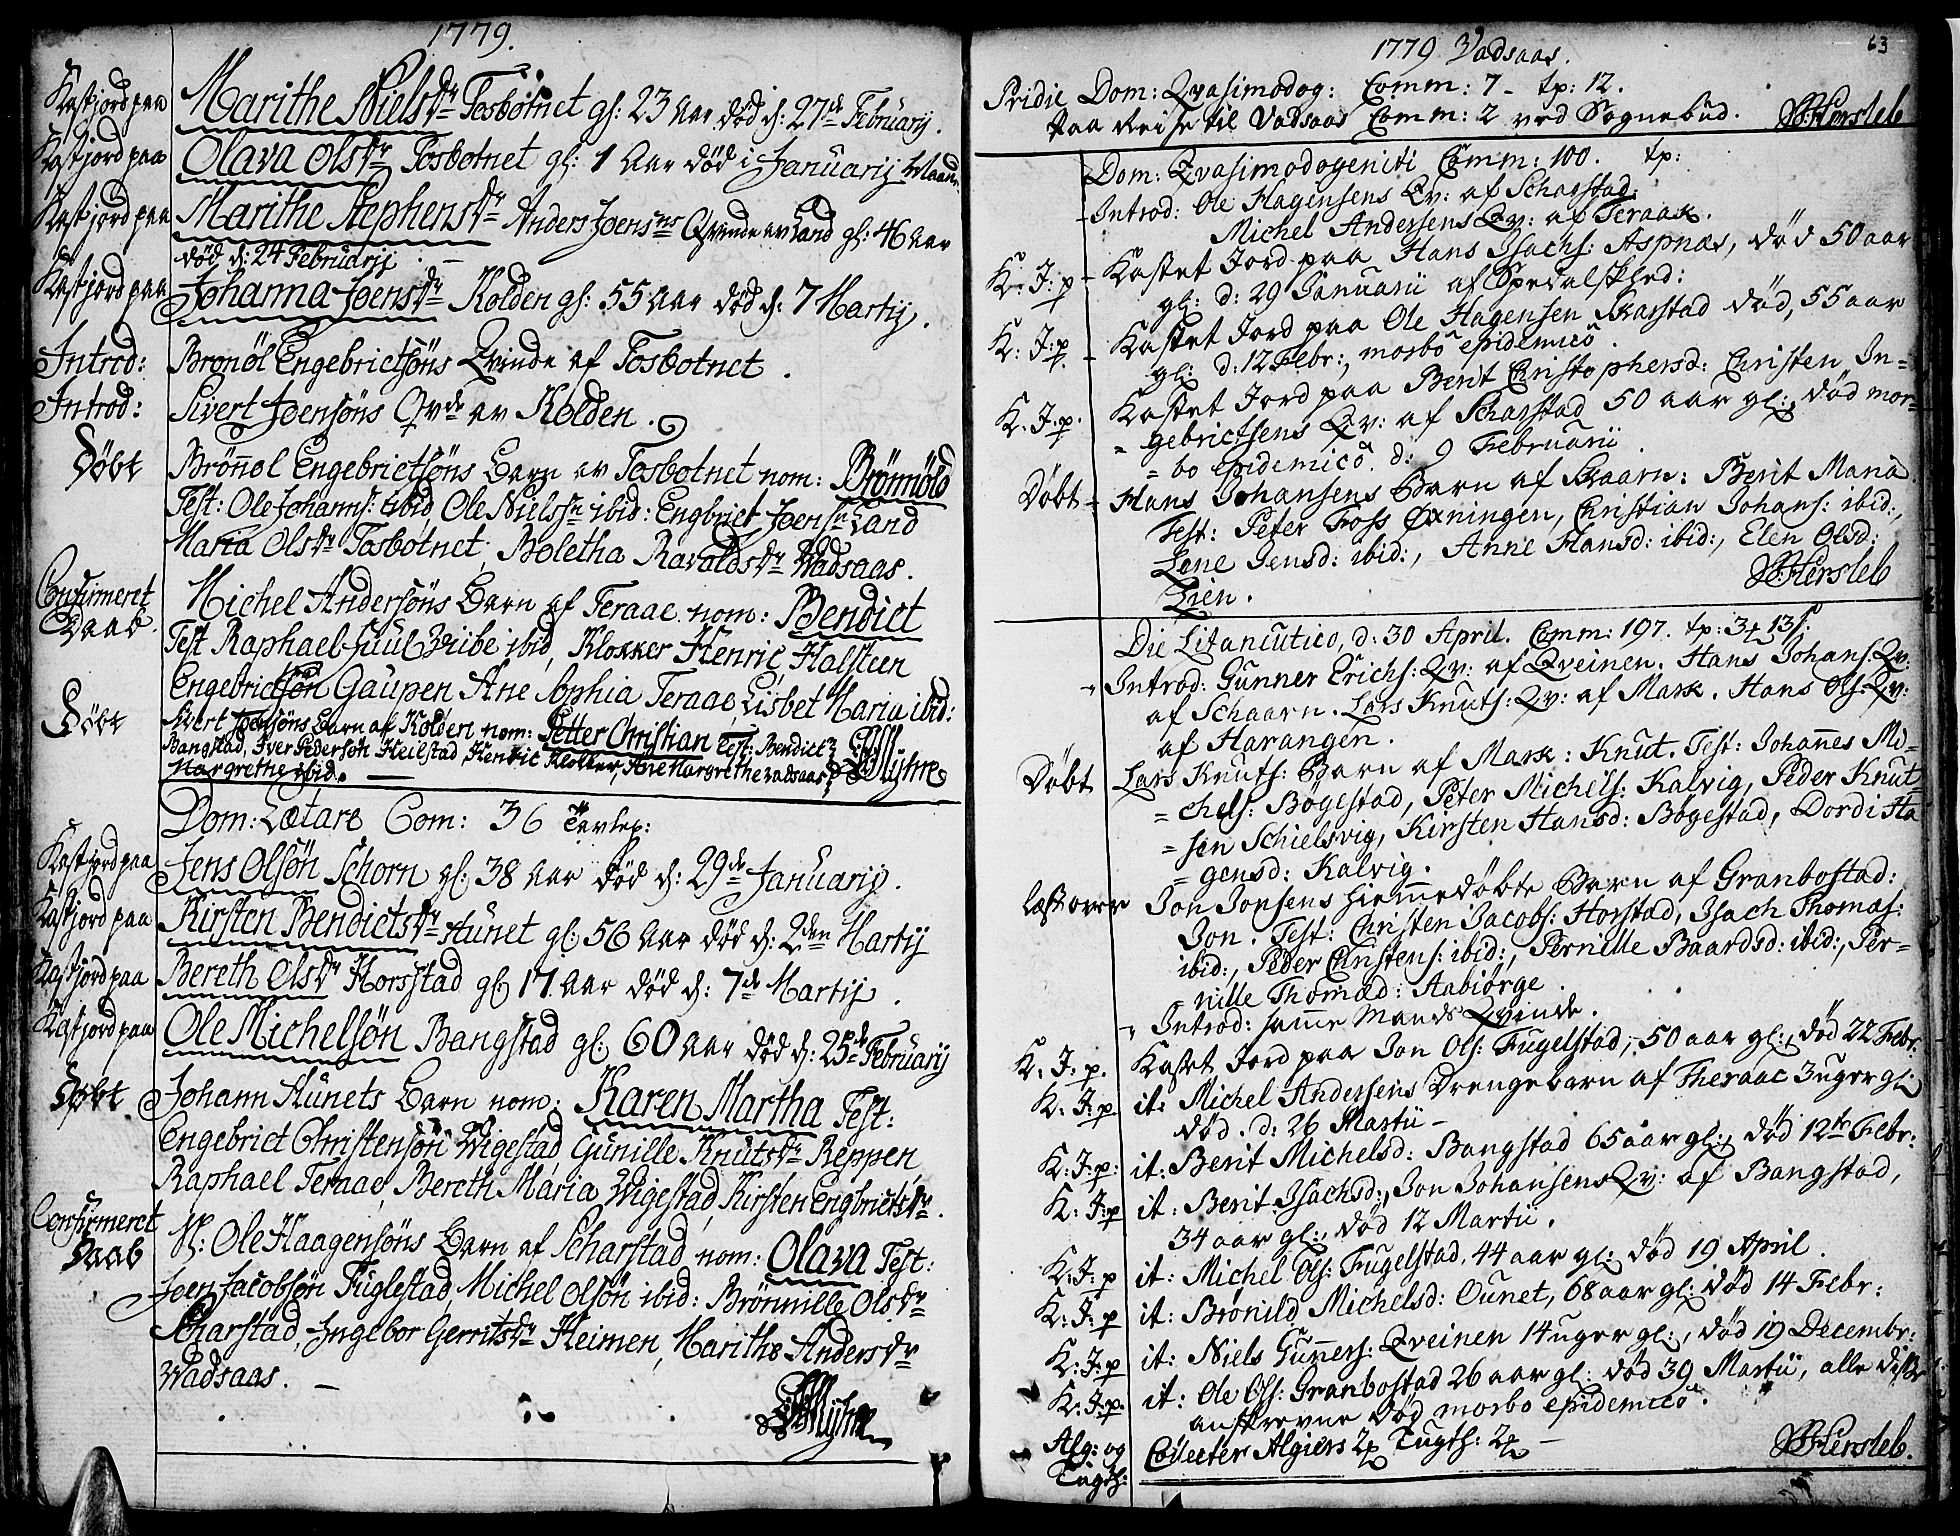 1779.
Kastjord paa Marithe Nielsdr Tosbotnet gl: 23 Aar død d: 27de Februarij.
Kastjord paa Olava Olsdr Tosbotnet gl: 1 Aar død i Januarij Maan
Kastjord paa Marithe Stephensdr Anders Joensøns Qvinde av Land gl: 46 Aar
død d: 24 Februarij. –
Kastjord paa Johanna Joensdr Kolden gl: 55 Aar død d: 7 Martij.
Introd: Bronøl Engebrictsøns Qvinde af Tosbotnet.
Introd: Sivert Joensøns Qvde av Kolden.
Døbt Brønnøl Engebrictsøns Barn av Tosbotnet nom: Brønnöld
Test: Ole Johanns: ibid, Ole Nielssn ibid: Engbrict Joensn Land
Maria Olsdr Tosbotnet, Boletha Ravaldsdr Wadsaas.
Confirmeret Daab Michel Andersøns Barn af Teraae nom: Bendict
Test Raphael Juul Wibe ibid, Klokker Henric Halsteen
Engebrictsøn Gaupen Ane Sophia Teraae, Lisbet Maria ibid:
Døbt Sivert Joensøns Barn af Kolden nom: Petter Christian Test: Bendict
Bangstad, Iver Pedersøn Heilstad, Henric Klokker, Ane Margrethe Vadsaas
Margrethe ibid. — Myhre
Dom: Lætare Com: 36 Tavlep:
Kastjord paa Jens Olsøn Schorn gl: 38 Aar død d: 29de Januarij.
Kastjord paa Kirsten Bendictsdr Aunet gl: 56 Aar død d: 2den Martij
Kastjord paa Bereth Olsdr Horsstad gl: 17 Aar død d: 7de Martij.
Kastjord paa Ole Michelsøn Bangstad gl: 60 Aar død d: 25de Februarij
Døbt Johann Aunets Barn nom: Karen Martha Test:
Engebrict Christensøn Wigestad, Gunille Knutsdr Reppen,
Raphael Teraae, Bereth Maria Wigestad, Kirsten Engbrictsdr.
Confirmeret Daab N: Ole Haagensøns Barn af Scharstad nom: Olava Test:
Joen Jacobsøn Fuglestad, Michel Olsøn ibid: Brønnille Olsdr
Scharstad, Ingebor Gerritsdr Heimen, Marithe Andersdr
Wadsaas. –
Myhre
1779 Vadsaas. 63
Pridie Dom: Qvasimodog: Comm: 7 – tp: 12.
Paa Reise til Vadsaas Comm: 2 ved Sognebud. Hersleb
Dom: Qvasimodogeniti Comm: 100. tp:
Introd: Ole Hagensens Qv: af Scharstad.
Michel Andersens Qv: af Teraak.
K: J: p – Kastet Jord paa Hans Isachs: Aspnæs, død 50 aar
gl: d: 29 Januarii af Spedalskhed:
K: J: p – Kastet Jord paa Ole Hagensen Skarstad død, 55 aar
gl: d: 12 Febr:, morbo epidemico.
K: J: p. Kastet Jord paa Berit Christophersd: Christen In=
= gebrictsens Qv: af Scharstad 50 aar gl:, død mor=
= bo epidemico. d: 9 Februarii.
Døbt – Hans Johansens Barn af Skaarn: Berit Maria.
Test: Peter Foss Øxningen, Christian Johans: ibid:,
Lene Jensd: ibid:, Anne Hansd: ibid:, Elen Olsd:
Lien. Hersleb
Die Litaneutico, d: 30 April. Comm: 197. tp: 3
Introd: Gunner Erichs: Qv: af Qveinen. Hans Johans: Qv:
af Schaarn. Lars Knuts: Qv: af Mark. Hans Ols: Qv:
af Harangen.
Døbt Lars Knuts: Barn af Mark: Knut. Test: Johannes Mi=
= chels: Bøgestad, Peter Michels: Kalvig, Peder Knut
= sen Schielsvig, Kirsten Hansd: Bøgestad, Dordi Ha
= gensd: Kalvig.
Læst over Jon Jonsens hiemmedøbte Barn af Granbostad:
Jon. Test: Christen Jacobs: Horstad, Isach Thomas:
ibid:, Peder Christens: ibid:, Pernille Baardsd: ibid:, Per=
= nille Thomasd: Aabiørge.
Introd: samme Mands Qvinde.
K: J: p. Kastet Jord paa Jon Ols: Fugelstad, 50 aar gl:, død 22 Febr:
K: J: p it: Michel Andersens Drengebarn af Theraae 3 uger gl:
død. d: 26 Martii –
K: J: p: it: Berit Michelsd: Bangstad 65 aar gl:, død 12te Febr:
K: J: p it: Berit Isachsd:, Jon Johansens Qv: af Bangstad,
34 aar gl:, død 12 Martii.
K: J: p it: Michel Ols: Fugelstad, 44 aar gl: død 19 April.
K: J: p it: Brønild Michelsd: Ounet, 68 aar gl: død 14 Febr:
K: J: p it: Niels Gunners: Qveinen 14 uger gl:, død 19 Decembr:
K: J: p. it: Ole Ols: Granbostad 26 aar gl: død 30 Martii, alle disse
anskrevne død morbo epidemico.
Alg: og Tugth: Collecter Algiers 2 Tugth: 2 –
Hersleb.